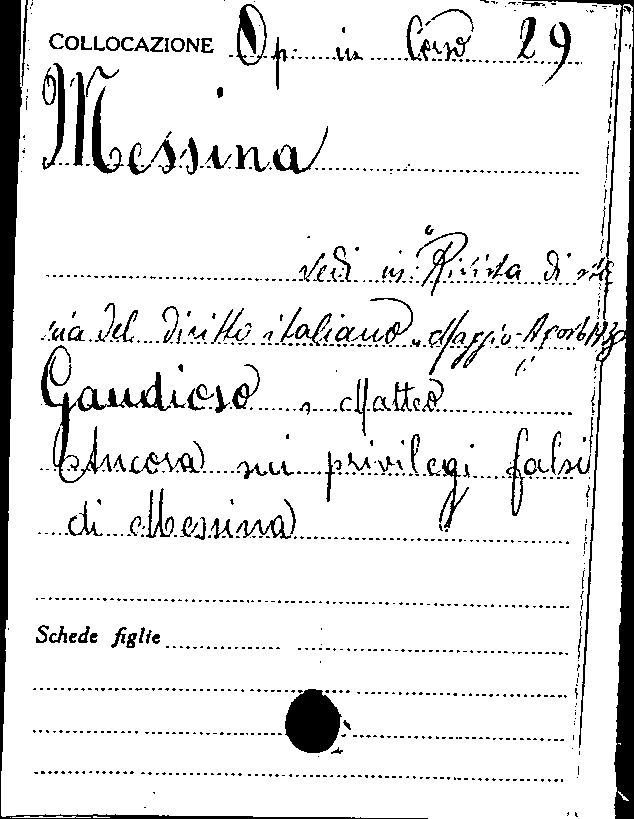 COLLOCAZIONE Op. in Corso 29
Messina
vedi in: "Rivista di sto
ria del diritto italiano" Maggio-Agosto
Gaudioso, Matteo
Ancora sui privilegi falsi
di Messina
Schede figlie